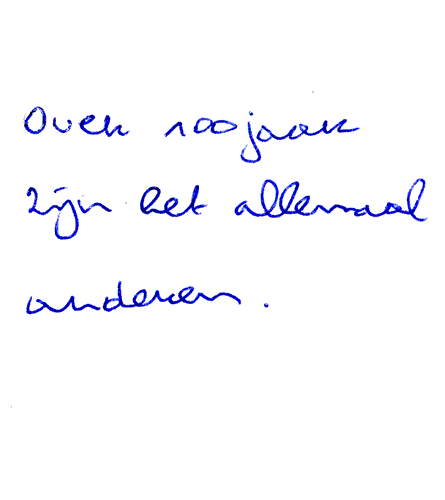 Over 100 jaar
zijn het allemaal
anderen.